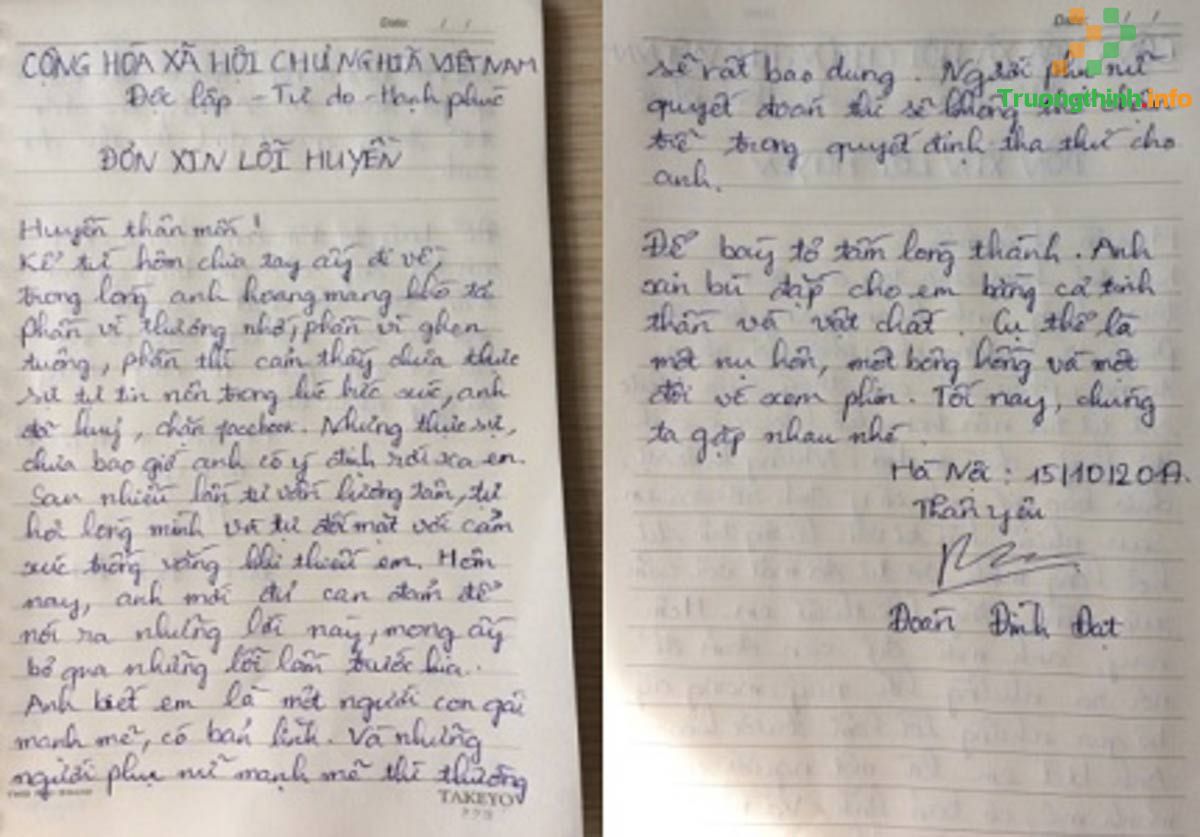 Date: / /
CỘNG HÒA XÃ HỘI CHỦ NGHĨA VIỆT NAM
Độc lập - Tự do - Hạnh phúc
ĐƠN XIN LỖI HUYỀN
Huyền thân mến!
Kể từ hôm chia tay ấy đi về,
trong lòng anh hoang mang khó tả
phần vì thương nhớ, phần vì ghen
tuông, phần thì cảm thấy chưa thực
sự tự tin nên trong lúc bức xúc, anh
đã huỷ, chặn facebook. Nhưng thực sự,
chưa bao giờ anh có ý định rời xa em.
Sau nhiều lần tự vấn lương tâm, tự
hỏi lòng mình và tự đối mặt với cảm
xúc trống vắng khi thiếu em. Hôm
nay, anh mới đủ can đảm để
nói ra những lời này, mong ấy
bỏ qua những lỗi lầm trước kia.
Anh biết em là một người con gái
mạnh mẽ, có bản lĩnh. Và những
người phụ nữ mạnh mẽ thì thường
TAKEYO
Date: / /
sẽ rất bao dung. Người phụ nữ
quyết đoán thì sẽ không
trễ trong quyết định tha thứ cho
anh.
Để bày tỏ tấm lòng thành. Anh
xin bù đắp cho em bằng cả tinh
thần và vật chất. Cụ thể là
một nụ hôn, một bông hồng và một
đôi vé xem phim. Tối nay, chúng
ta gặp nhau nhé.
Hà Nội: 15/10/2017.
Thân yêu
Đoàn Đình Đạt
Truongthinh.info